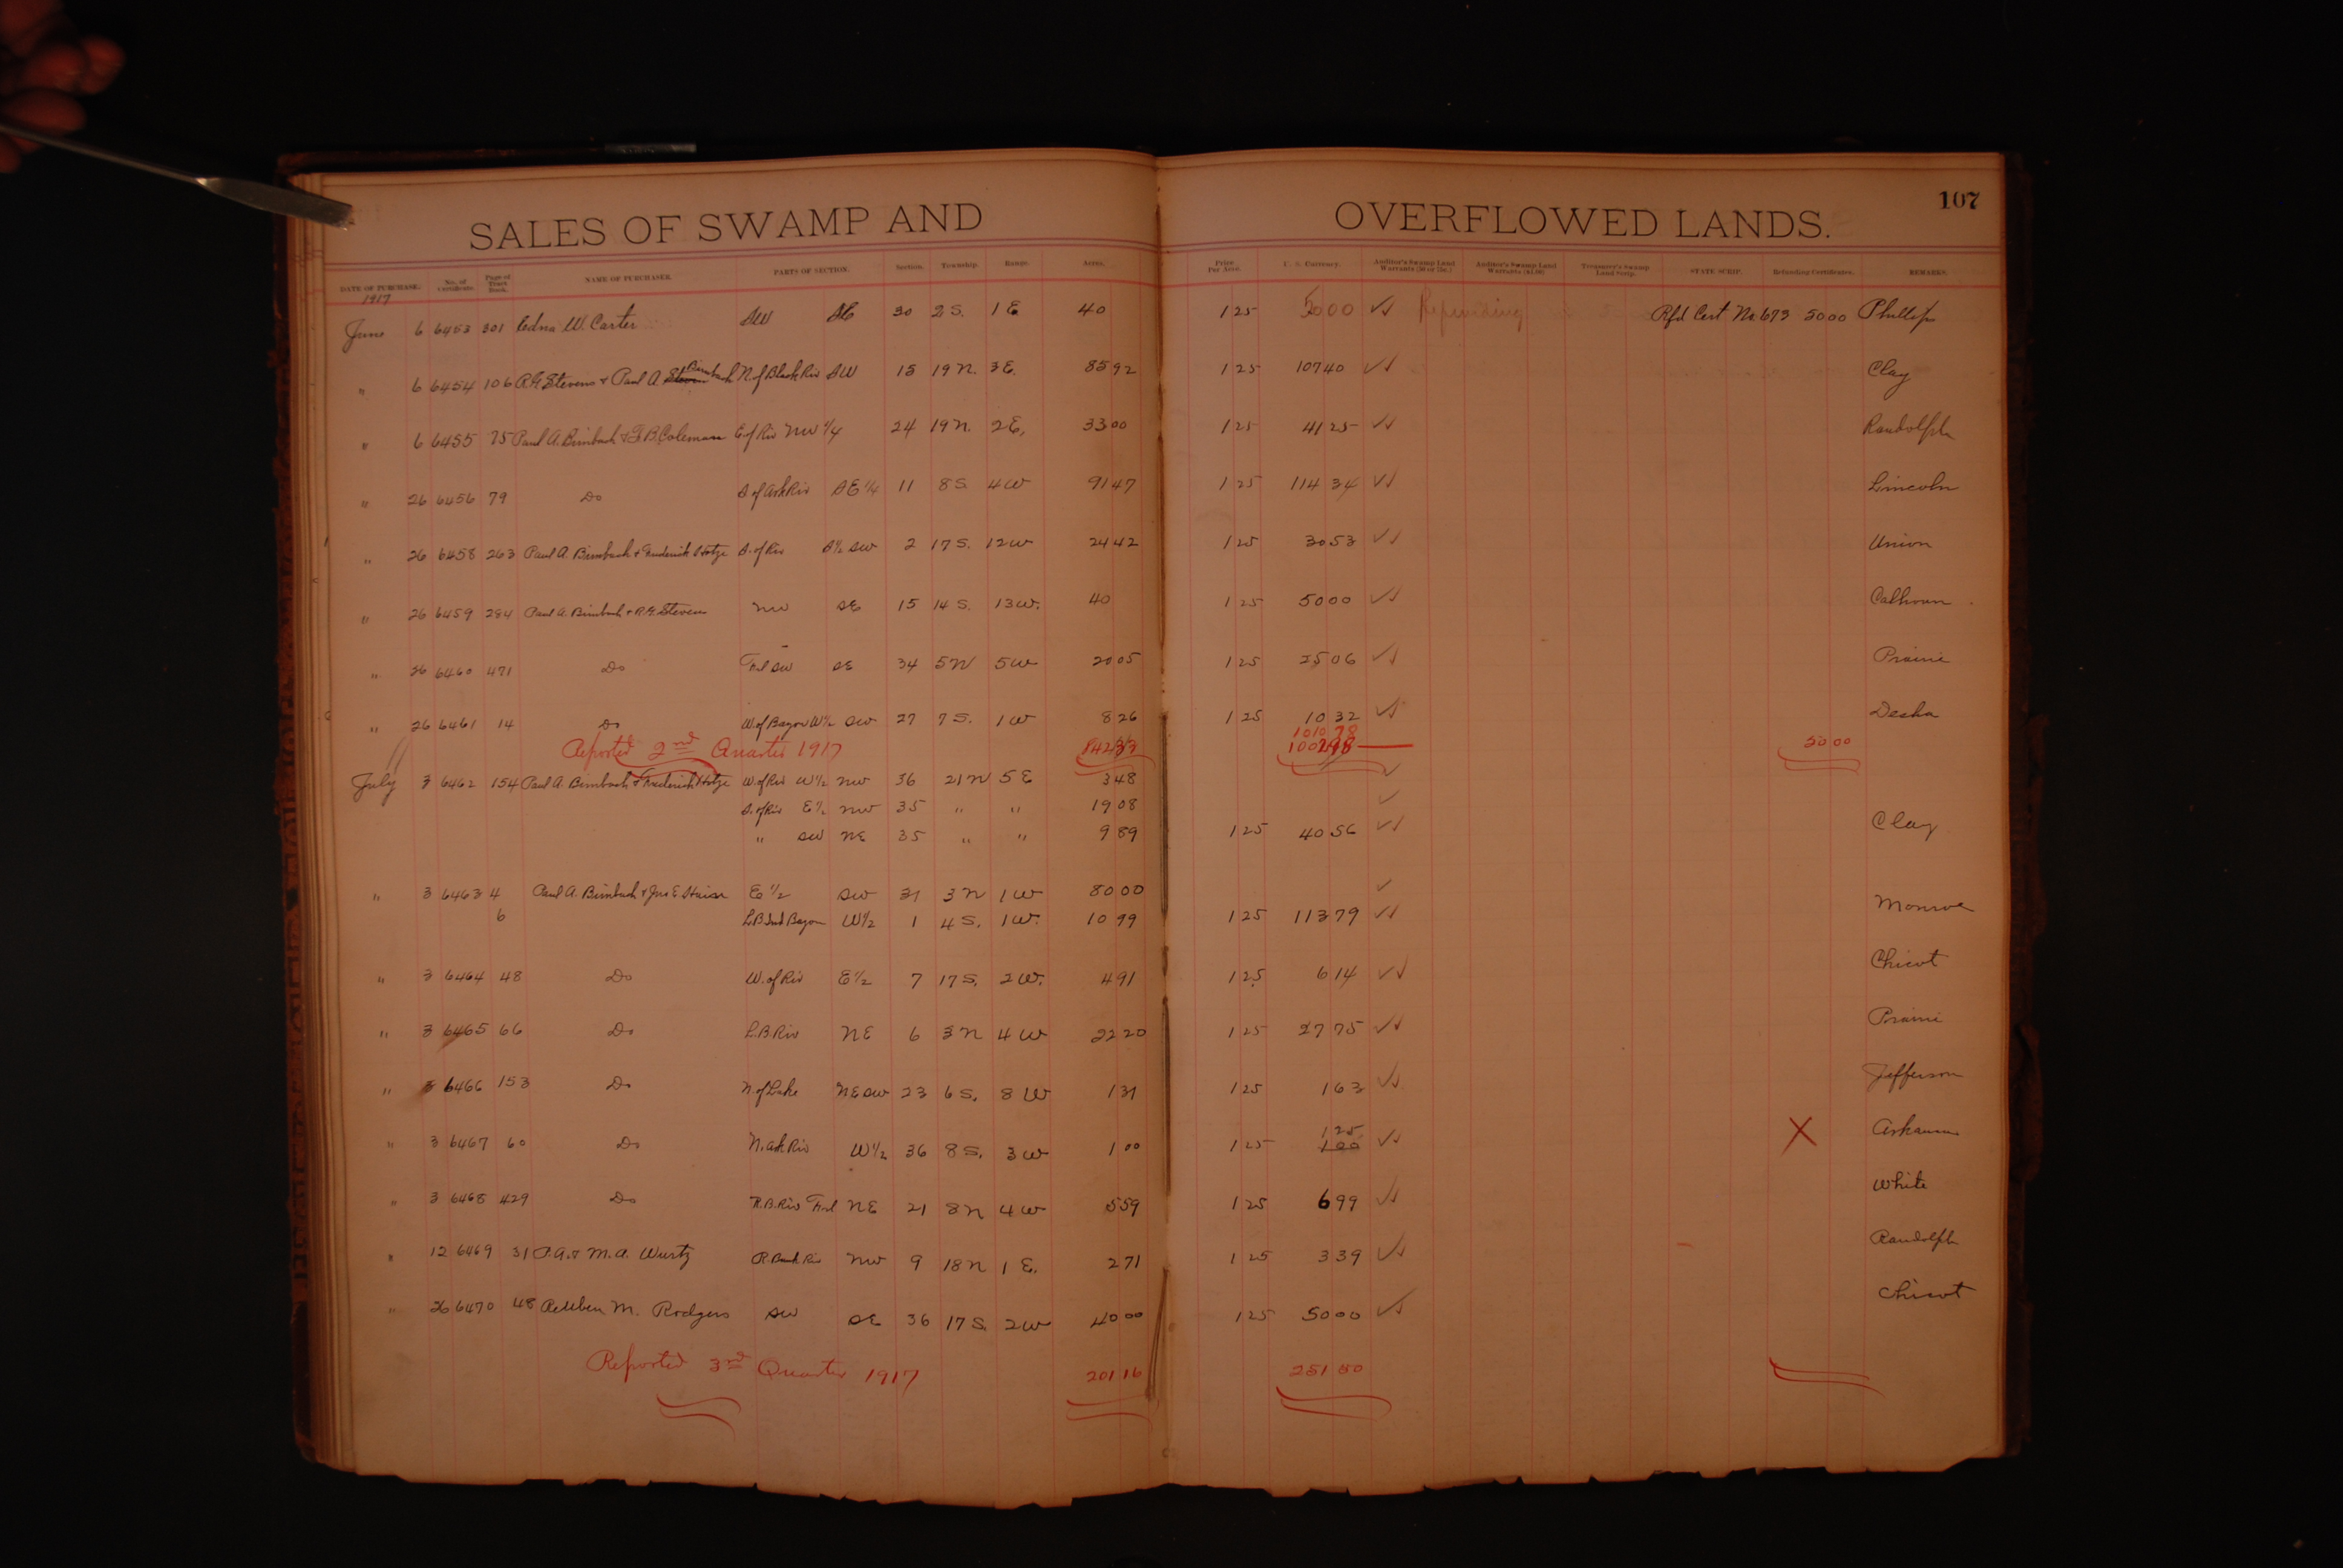 107
SALES OF SWAMP AND OVERFLOWED LANDS.
DATE OF PURCHASE. No. of Certificate. Page of Tract Book. NAME OF PURCHASER. PARTS OF SECTION. Section. Township. Range. Acres. Price Per Acre. U. S. Currency. Auditor's Swamp Land Warrants (50 or 75c.) Auditor's Swamp Land Warrants ($1.00) Treasurer's Swamp Land Scrip. STATE SCRIP. Refunding Certificates. REMARKS.
1917
June 6 6453 301 Edna W. Carter SW SE 30 2 S. 1 E 40 1 25 50 00 Refunding Rfd Cert No 673 50 00 Phillips
" 6 6454 106 R.E. Stevens & Paul A. Birnbach N. of Black Riv SW 15 19 N. 3 E. 85 92 1 25 107 40 Clay
" 6 6455 75 Paul A. Birnbach & F.B. Coleman E. of Riv NW 1/4 24 19 N. 2 E. 33 00 1 25 41 25 Randolph
" 26 6456 79 Do S of Ark Riv SE 1/4 11 8 S. 4 W 91 47 1 25 114 34 Lincoln
" 26 6458 263 Paul A. Birnbach & Frederick Hotze S. of Riv S 1/2 SW 2 17 S. 12 W 24 42 1 25 30 53 Union
" 26 6459 284 Paul A. Birnbach & R.E. Stevens NW SE 15 14 S. 13 W. 40 1 25 50 00 Calhoun
" 26 6460 471 Do Frl SW SE 34 5 N 5 W 20 05 1 25 25 06 Prairie
" 26 6461 14 Do W. of Bayou W 1/2 SW 27 7 S. 1 W 8 26 1 25 10 32 Desha
1010 78
Reported 2nd Quarter 1917 50 00
July 3 6462 154 Paul A. Birnbach & Frederick Hotze W. of Riv W 1/2 NW 36 21 N 5 E 3 48
S. of Riv E 1/2 NW 35 " " 19 08
" SW NE 35 " " 9 89 1 25 40 56 Clay
" 3 6463 4 Paul A. Birnbach & Jno E E 1/2 SW 31 3 N 1 W 80 00
6 L.B. Bayou W 1/2 1 4 S. 1 W. 10 99 1 25 113 79 Monroe
" 3 6464 48 Do W. of Riv E 1/2 7 17 S. 2 W. 4 91 1 25 6 14 Chicot
" 3 6465 66 Do L.B. Riv NE 6 3 N 4 W 22 20 1 25 27 75 Prairie
" 3 6466 153 Do N. of Lake NE SW 23 6 S. 8 W 1 31 1 25 1 63 Jefferson
1 25
" 3 6467 60 Do N. Ark Riv W 1/2 36 8 S. 3 W 1 00 1 25 1 00 X Arkansas
" 3 6468 429 Do R.B. Riv Frl NE 21 8 N 4 W 5 59 1 25 6 99 White
" 12 6469 31 & M.A. Wurtz R. Bank Riv NW 9 18 N 1 E. 2 71 1 25 3 39 Randolph
" 26 6470 48 Reuben M. Rodgers SW SE 36 17 S. 2 W 40 00 1 25 50 00 Chicot
Reported 3rd Quarter 1917 201 16 251 50